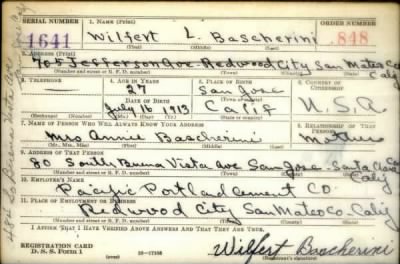 SERIAL NUMBER
1. NAME (Print)
ORDER NUMBER
1641
Wilfert L. Bascherini
848
(First) (Middle) (Last)
2. ADDRESS (Print)
705 Jefferson Ave. Redwood City San Mateo Calif
(Number and street or R. F. D. number) (Town) (County) (State)
3. TELEPHONE
4. AGE IN YEARS
27
5. PLACE OF BIRTH
San Jose
6. COUNTRY OF CITIZENSHIP
DATE OF BIRTH
July 15 1913
Calif
U.S.A.
(Exchange) (No.) (Mo.) (Day) (Yr.) (Town or county) (State or country)
7. NAME OF PERSON WHO WILL ALWAYS KNOW YOUR ADDRESS
8. RELATIONSHIP OF THAT PERSON
Mrs Bascherini
Mother
(Mr., Mrs., Miss) (First) (Middle) (Last)
9. ADDRESS OF THAT PERSON
80 South Buena Vista Ave San Jose Santa Clara Calif
(Number and street or R. F. D. number) (Town) (County) (State)
10. EMPLOYER'S NAME
Pacific Portland Cement Co.
11. PLACE OF EMPLOYMENT OR BUSINESS
Redwood City San Mateo Co. Calif
(Number and street or R. F. D. number) (Town) (County) (State)
I AFFIRM THAT I HAVE VERIFIED ABOVE ANSWERS AND THAT THEY ARE TRUE.
REGISTRATION CARD
D. S. S. Form 1
16—17105
Wilfert Bascherini
(Registrant's signature)